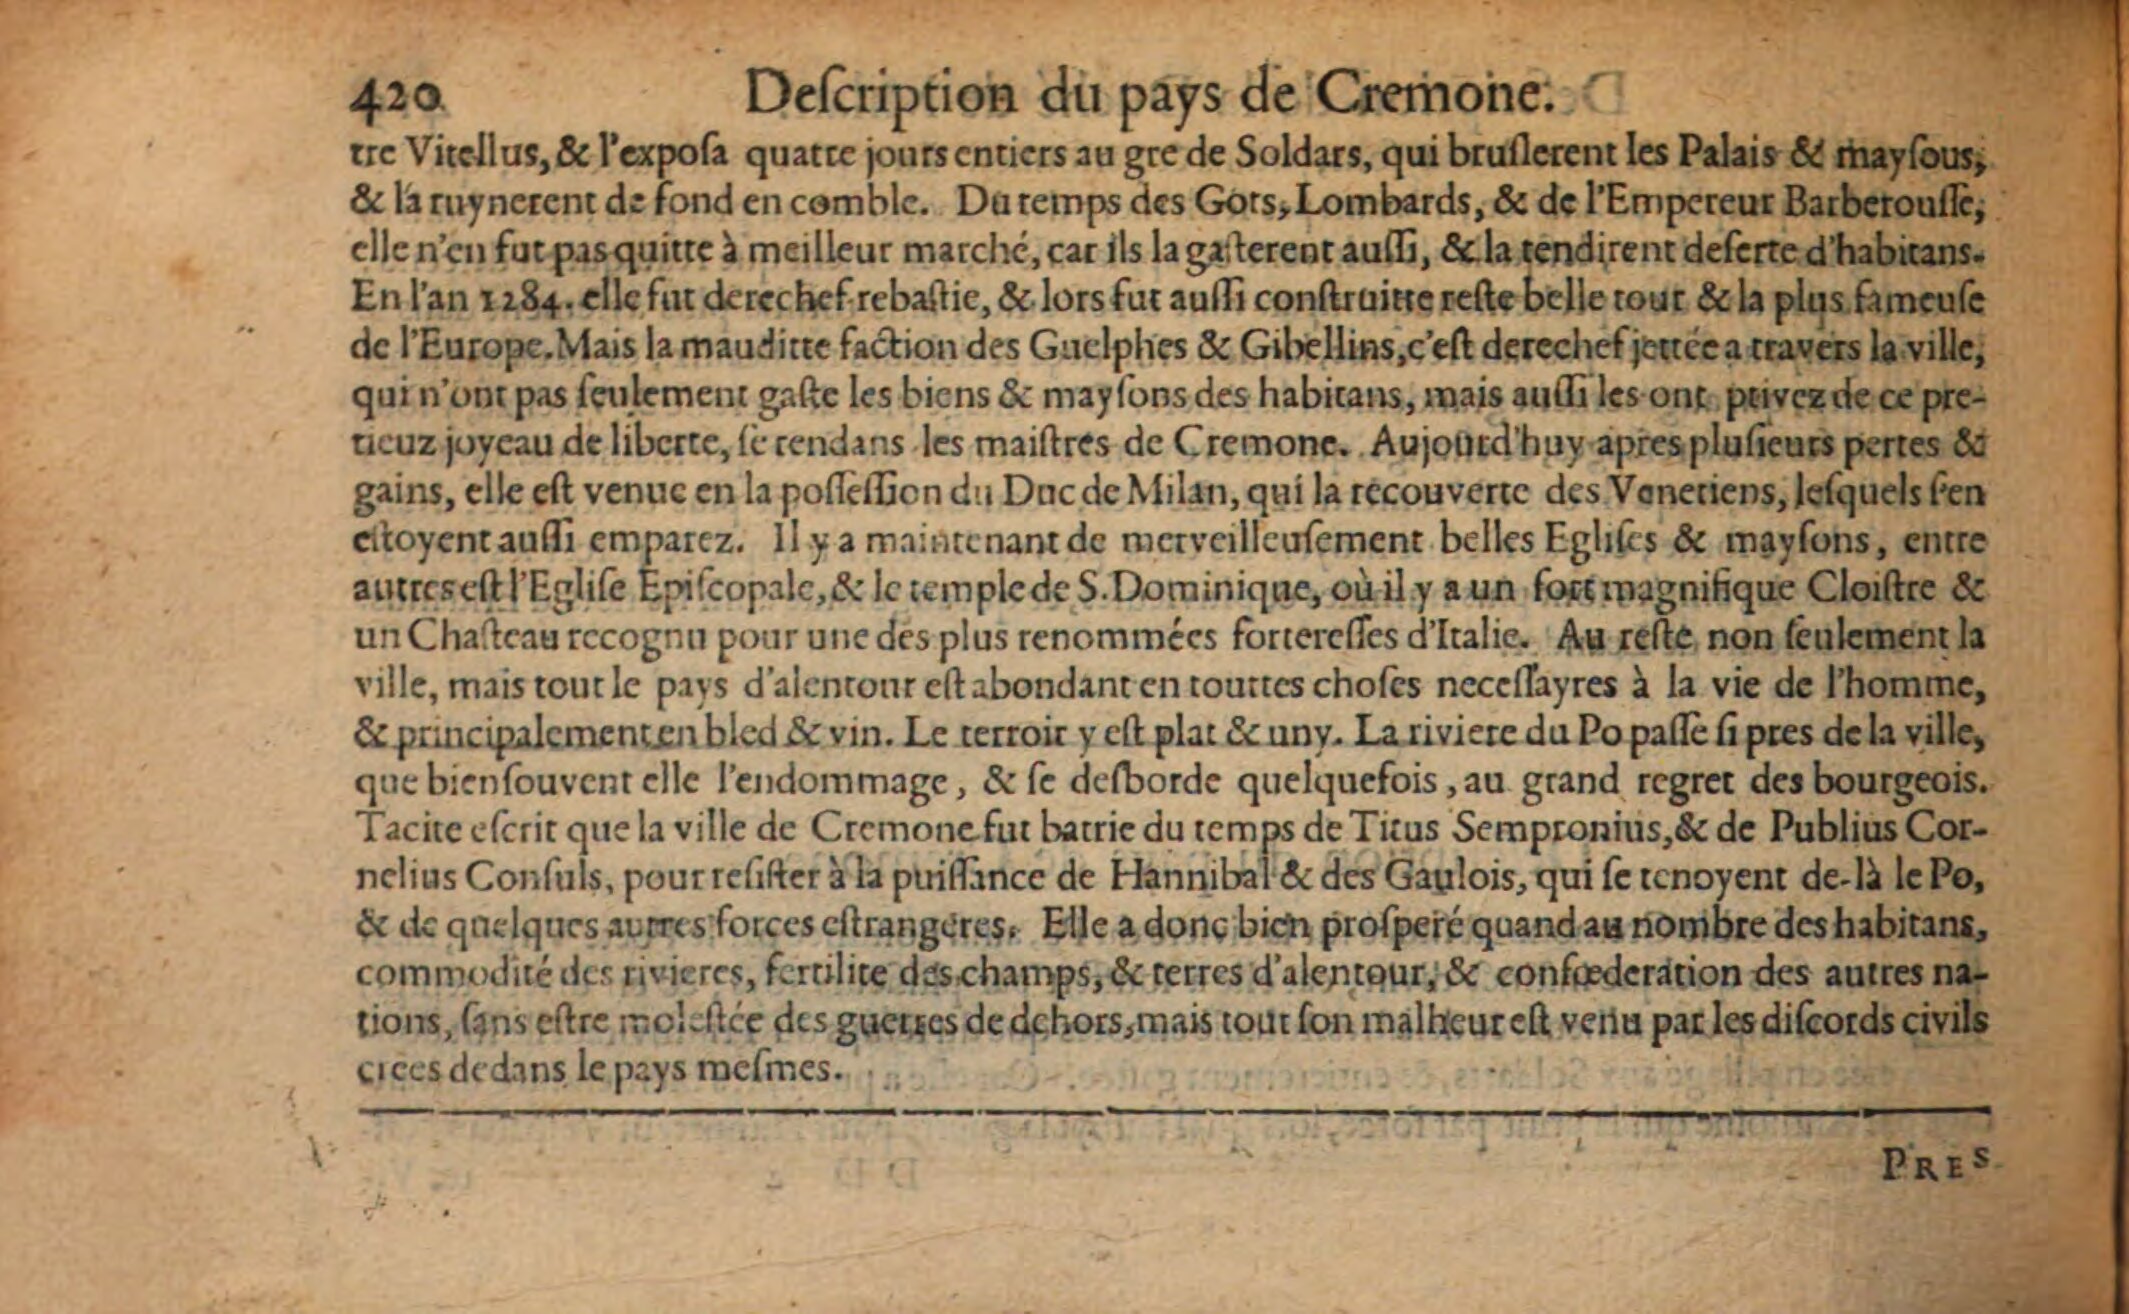 420 Deſcription du pays de Cremone.
tre Vitellus, & l'expoſa quatre jours entiers au gre de Soldars, qui bruſlerent les Palais & mayſous,
& la ruynerent de fond en comble. Du temps des Gots, Lombards, & de l'Empereur Barberouſſe,
elle n'en fut pas quitte à meilleur marché, car ils la gaſterent auſſi, & la rendirent deſerte d'habitans.
En l'an 1284. elle fut derechef rebaſtie, & lors fut auſſi conſtruitte reſte belle tour & la plus fameuſe
de l'Europe. Mais la mauditte faction des Guelphes & Gibellins, c'eſt derechef jettée a travers la ville,
qui n'ont pas ſeulement gaſte les biens & mayſons des habitans, mais auſſi les ont privez de ce pre-
tieuz joyeau de liberte, ſe rendans les maiſtres de Cremone. Aujourd'huy apres pluſieurs pertes &
gains, elle eſt venue en la poſſeſſion du Duc de Milan, qui la recouverte des Venetiens, leſquels ſ'en
eſtoyent auſſi emparez. Il y a maintenant de merveilleuſement belles Egliſes & mayſons, entre
autres eſt l'Egliſe Epiſcopale, & le temple de S. Dominique, où il y a un fort magnifique Cloiſtre &
un Chaſteau recognu pour une des plus renommées fortereſſes d'Italie. Au reſte non ſeulement la
ville, mais tout le pays d'alentour eſt abondant en touttes choſes neceſſayres à la vie de l'homme,
& principalement en bled & vin. Le terroir y eſt plat & uny. La riviere du Po paſſe ſi pres de la ville,
que bien ſouvent elle l'endommage, & ſe deſborde quelquefois, au grand regret des bourgeois.
Tacite eſcrit que la ville de Cremone fut battie du temps de Titus Sempronius, & de Publius Cor-
nelius Conſuls, pour reſiſter à la puiſſance de Hannibal & des Gaulois, qui ſe tenoyent de-là le Po,
& de quelques autres forces eſtrangeres. Elle a donc bien proſperé quand au nombre des habitans,
commodité des rivieres, fertilite des champs, & terres d'alentour, & confœderation des autres na-
tions, ſans eſtre moleſtée des guerres de dehors, mais tout ſon malheur eſt venu par les diſcords civils
crees dedans le pays meſmes.
PRES